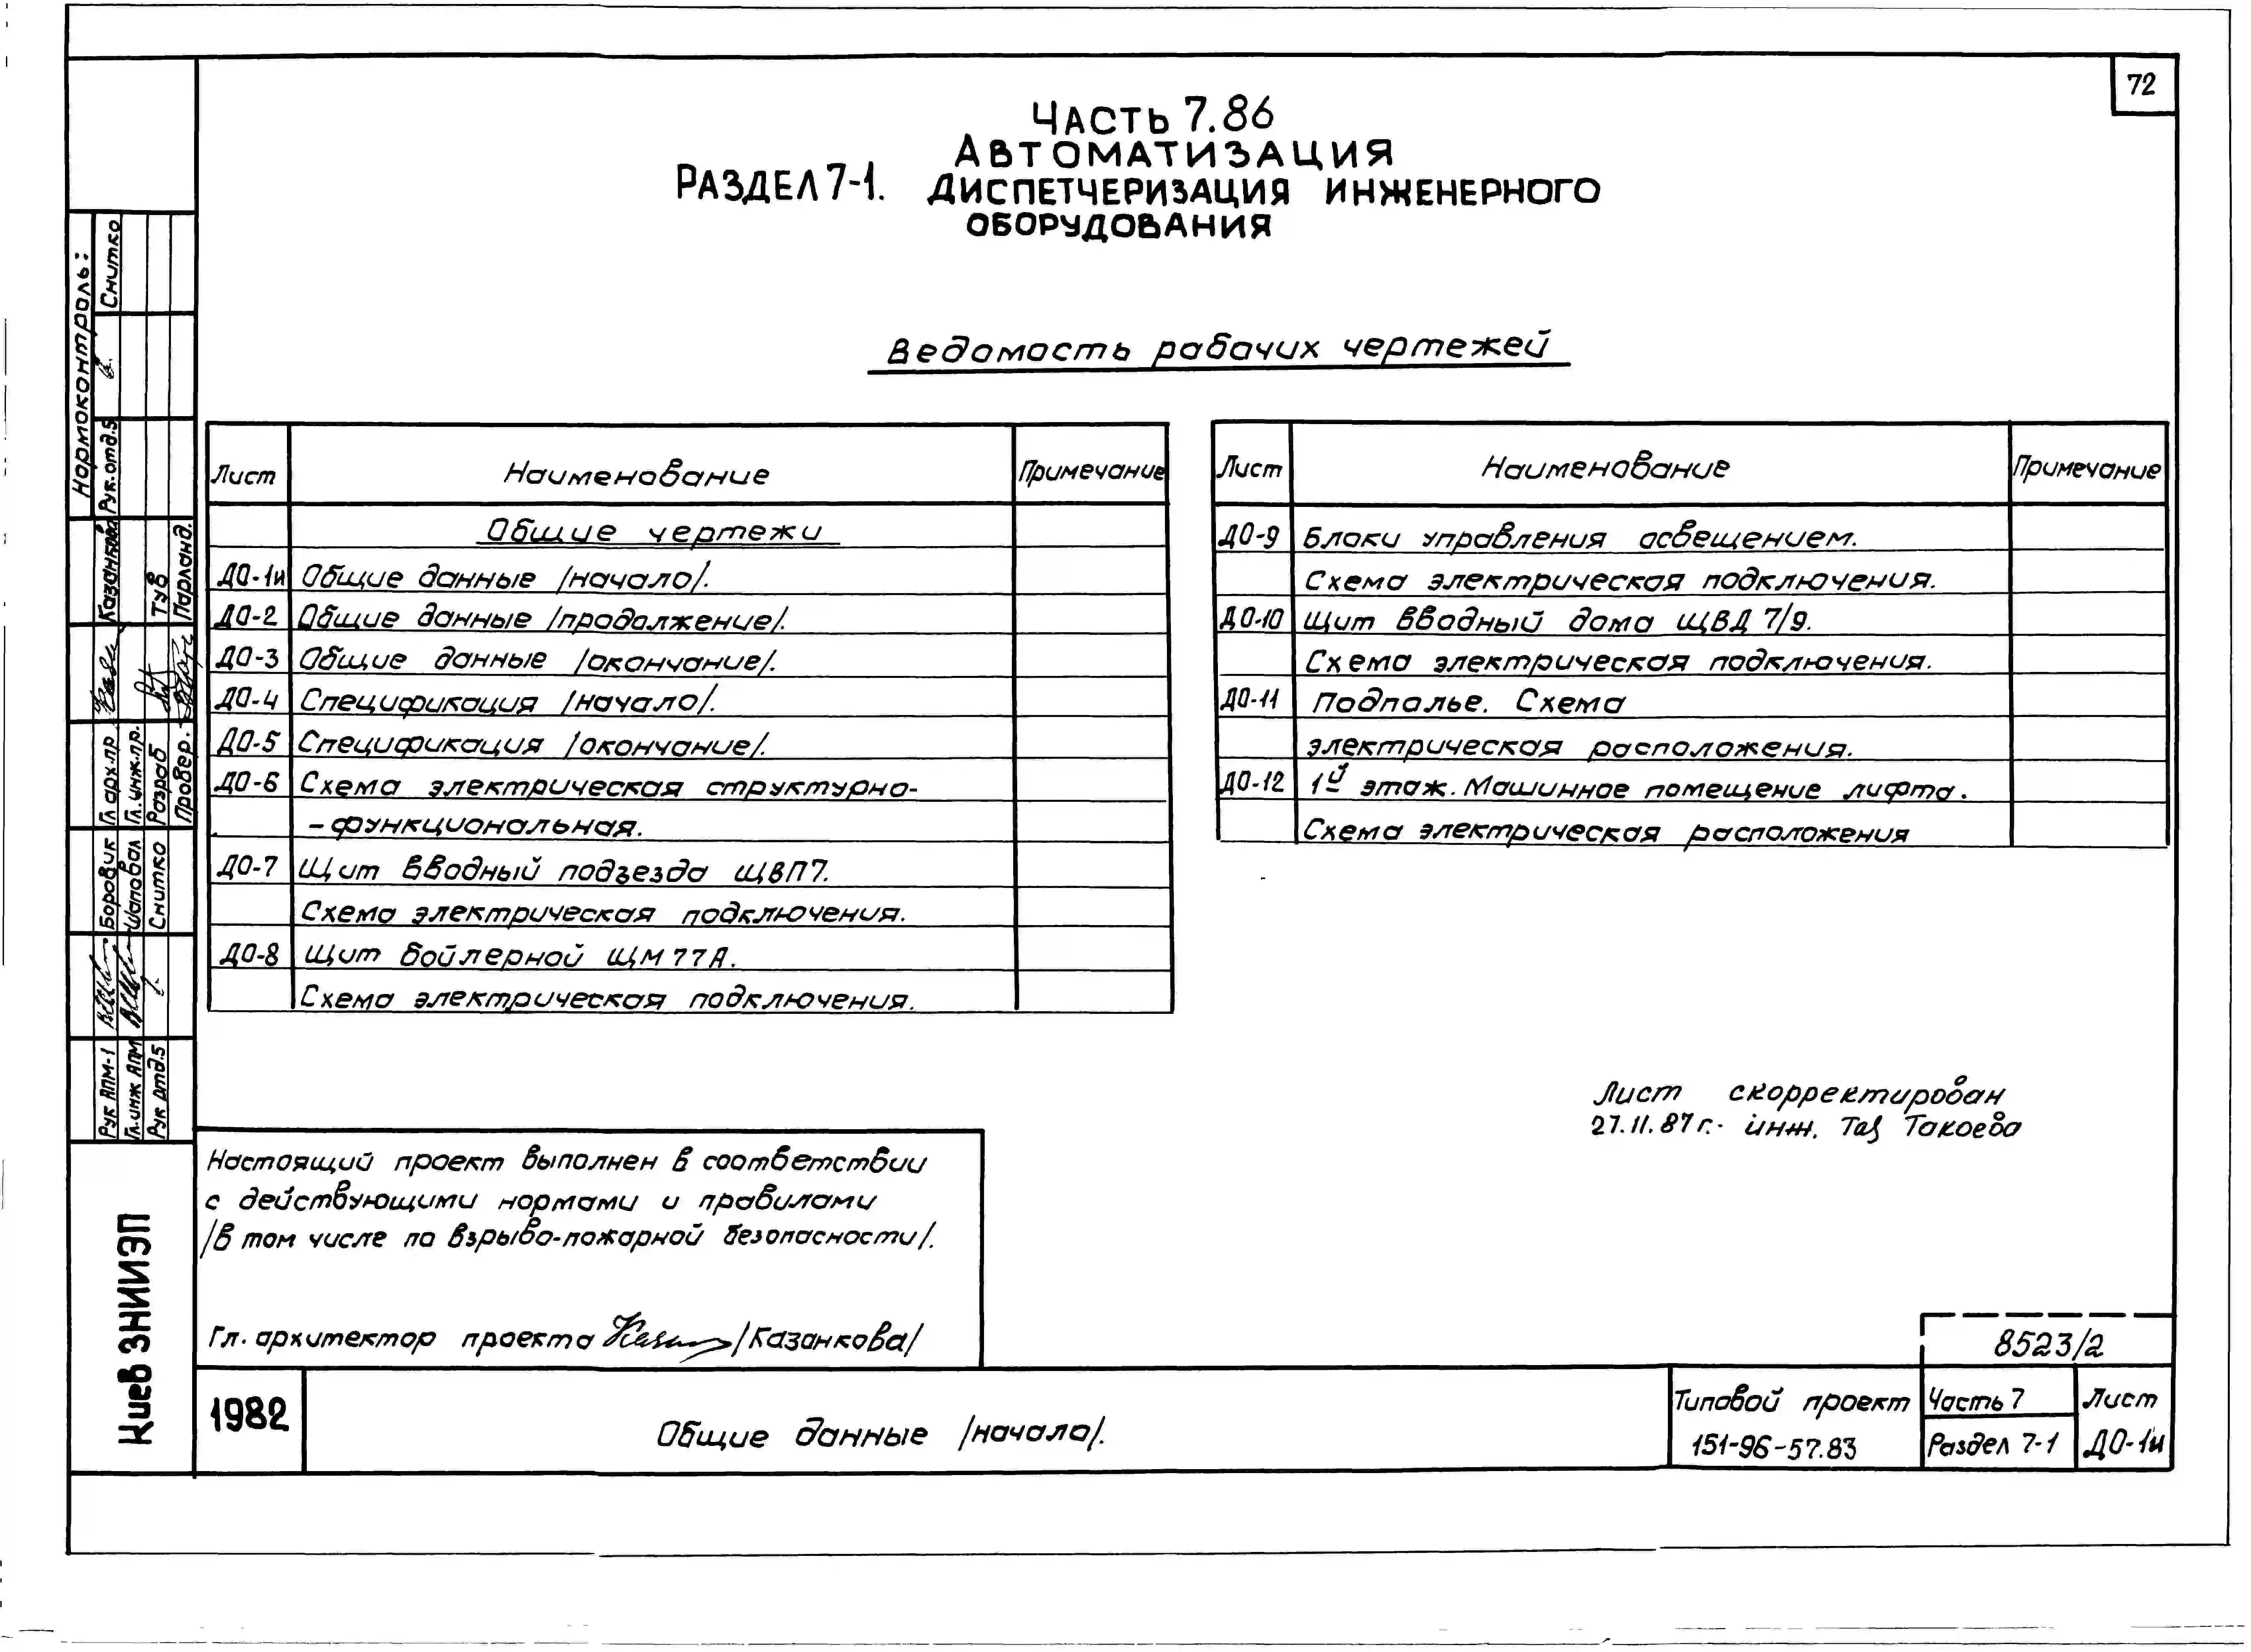 72
Часть 7.86
Автоматизация
Раздел 7-1. диспетчеризация инженерного
оборудования
Ведомость рабочих чертежей
Лист Наименование Примечание
Общие чертежи
ДО-1и Общие данные /начало/.
ДО-2 Общие данные /продолжение/.
ДО-3 Общие данные /окончание/.
ДО-4 Спецификация /начало/.
ДО-5 Спецификация /окончание/.
ДО-6 Схема электрическая структурно-
-функциональная.
ДО-7 Щит вводный подъезда ЩВП7.
Схема электрическая подключения.
ДО-8 Щит бойлерной ЩМ77А.
Схема электрическая подключения.
Лист Наименование Примечание
ДО-9 Блоки управления освещением.
Схема электрическая подключения.
ДО-10 Щит вводный дома ЩВД 7/9.
Схема электрическая подключения.
ДО-11 Подполье. Схема
электрическая расположения.
ДО-12 1й этаж. Машинное помещение лифта.
Схема электрическая расположения
Лист скорректирован
27.11.87г. инж. Такоева
Настоящий проект выполнен в соответствии
с действующими нормами и правилами
/в том числе по взрыво-пожарной безопасности/.
Гл. архитектор проекта /Казанкова/
8523/2
1982
Общие данные /начало/.
Типовой проект
151-96-57.83
Часть 7
Раздел 7-1
Лист
ДО-1и
Нормоконтроль:
Рук.отд.5 Снитко
Гл арх.пр. Казанкова
Гл.инж.пр.
Разраб Тув
Провер. Парланд.
Рук АПМ-1 Боровик
Гл.инж АПМ Шаповал
Рук отд.5 Снитко
Киев ЗНИИЭП